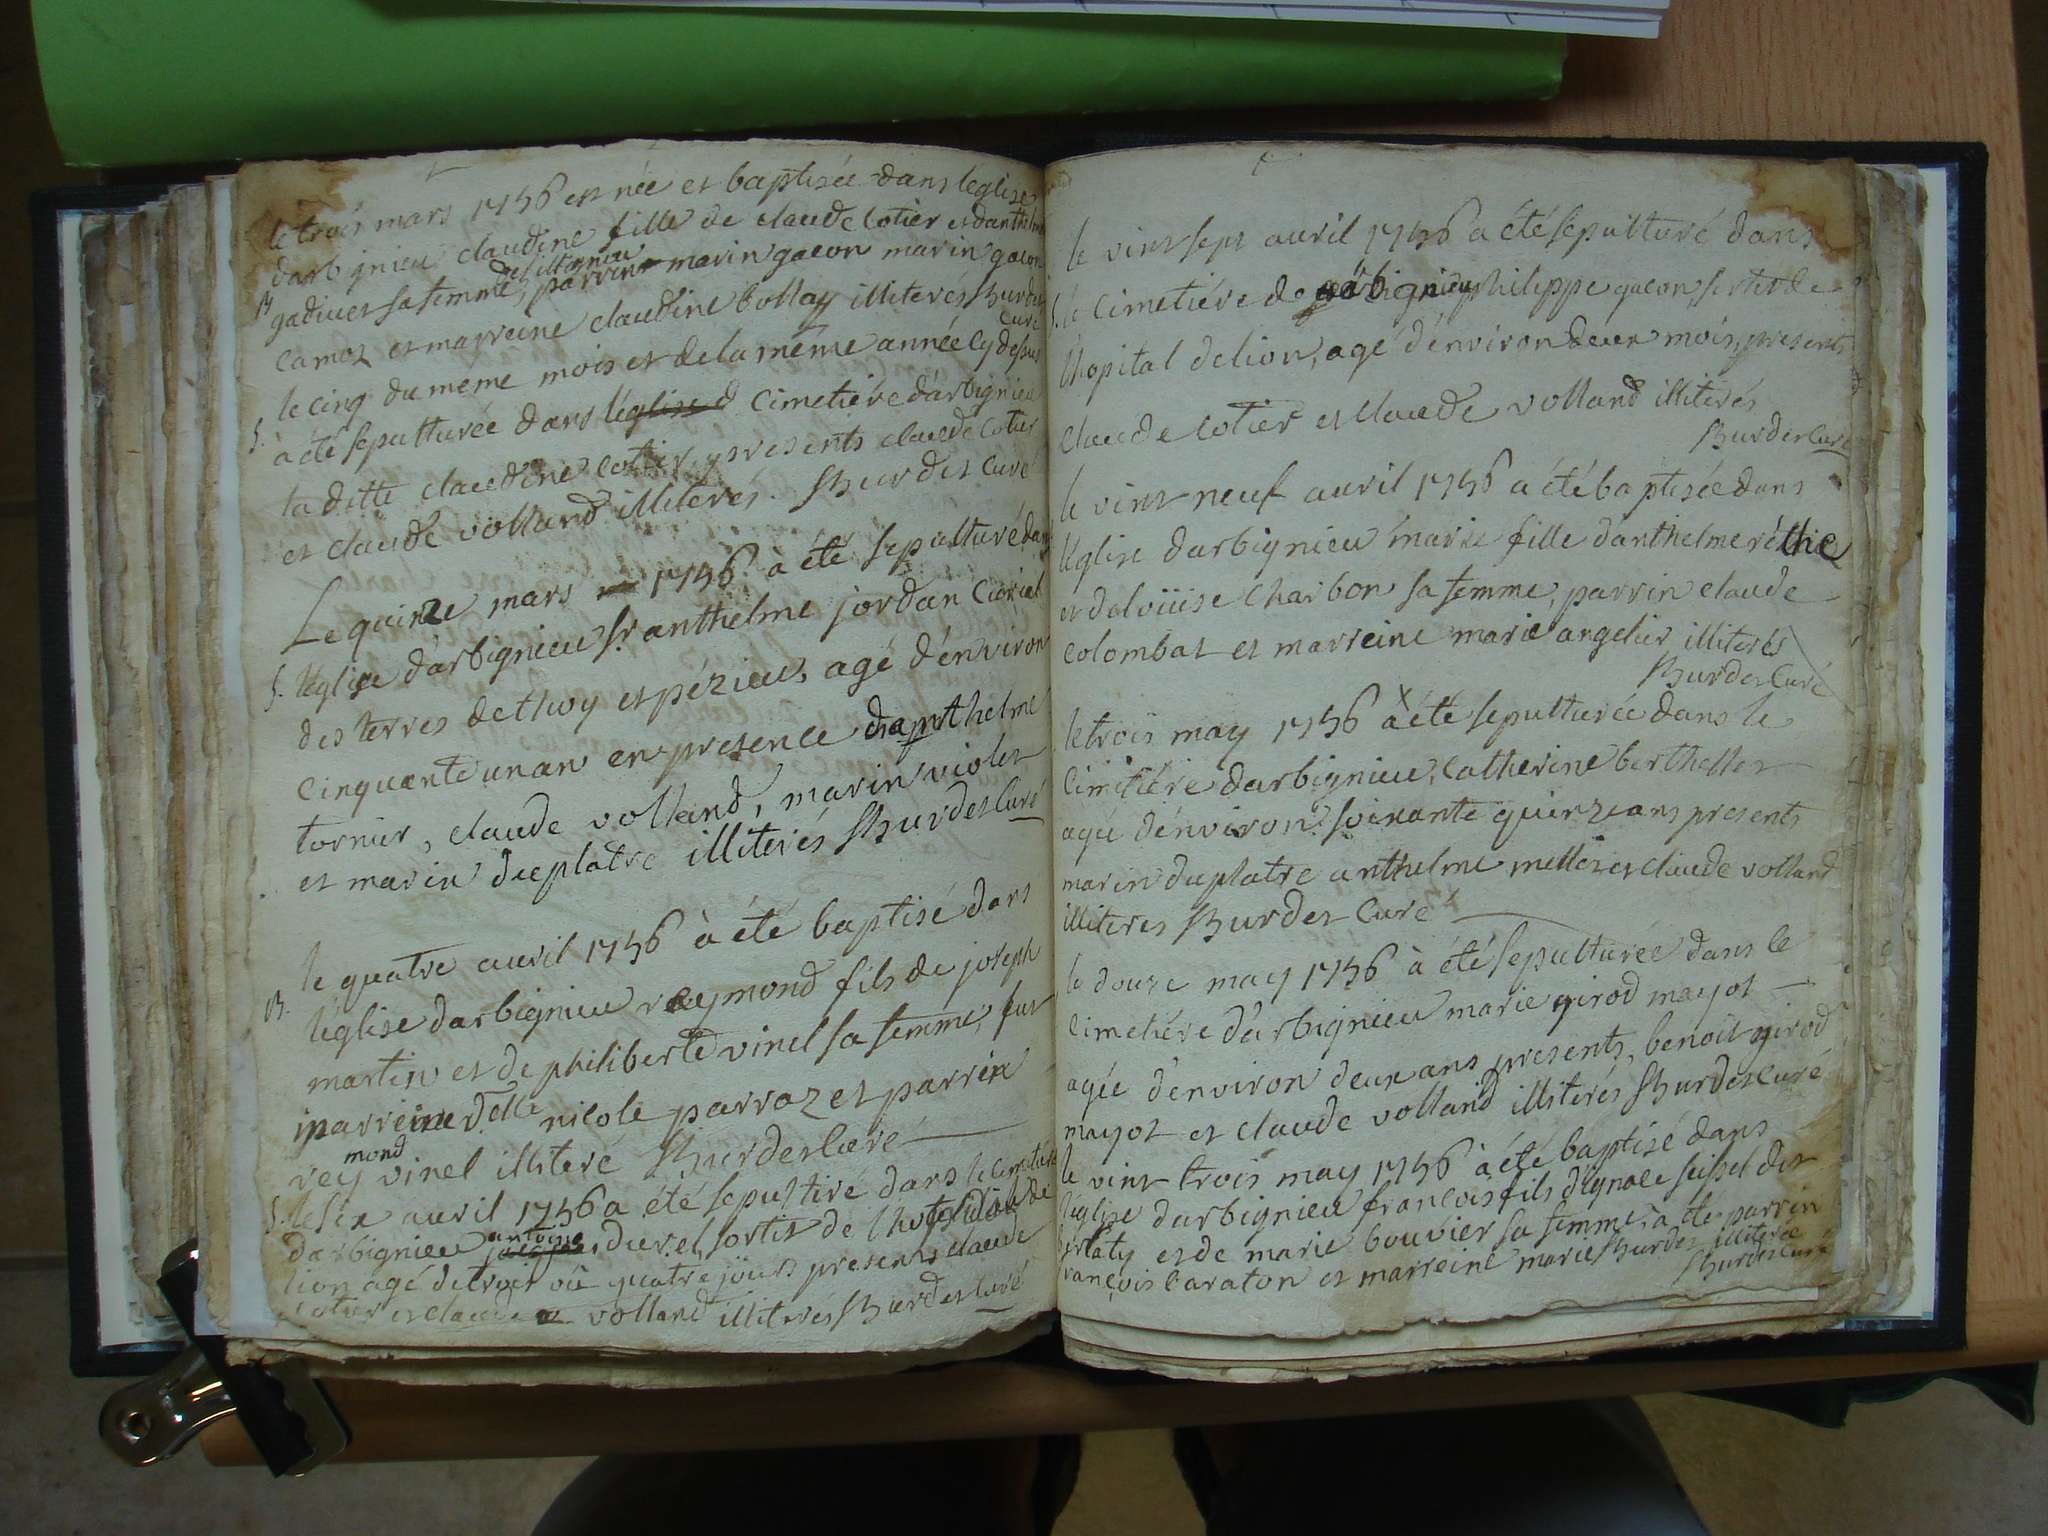 le trois mars 1756 est née et baptisée dans leglise
darbignieu claudine fille de claude cotier et danthelme
B gadiuet sa femme, parrin marin gacon marin gacon
camoz et marreine claudine bollay illiterés Hurdet
curé
le cinq du meme mois et de la même année cy dessus
S. à été sepulturée dans l'église d cimetiére d'arbignieu
la ditte claudine cotier, presents claude cotier
et claude volland illiterés. Hurdet curé
Le quinze mars 1756 à été sepulturé dans
S. l'église d'arbignieu Sr. anthelme jordan
des terres de thoy et pézieu, agé d'environ
cinquante un an en presence d'anthelme
tornier, claude volland, marin violet
et marin duplatre illiterés Hurdet curé
le quatre auril 1756 à été baptisé dans
B. l'église darbignieu reymond fils de joseph
martin et de philiberte vinel sa femme, fut
marreine d.elle nicole parraz et parrin
reymond vinel illiteré Hurdet curé
S. le six auril 1756 a été sepulturé dans le cimetiére
darbignieu antoine duret, sortit de l'hotel dieu de
lion agé de trois où quatre jours presents claude
cotier et claude volland illiterés Hurdet curé
le vint sept auril 1756 a été sepulturé dans
S. le cimetiére de arbignieu philippe gacon sortit de
l'hopital de lion, agé d'environ deux mois, presents
claude cotier et claude volland illiterés
Hurdet curé
le vint neuf auril 1756 a été baptisée dans
l'église darbignieu marie fille d'anthelme réthie
et de loüise charbon sa femme, parrin claude
colombat et marreine marie angelier illiterés
Hurdet curé
le trois may 1756 à été sepulturée dans le
cimitiére darbignieu, catherine berthellet
agée d'environ soixante quinze ans presents
marin duplatre anthelme mettez et claude volland
illiteres Hurdet curé
le douze may 1756 à été sepulturée dans le
cimetiére d'arbignieu marie girod mayot
agée d'environ deux ans, presents, benoit girod
mayot et claude volland illiterés Hurdet curé
le vint trois may 1756 à été baptisé dans
l'église darbignieu françois fils d'ignace seissel dit
berlaty et de marie bouvier sa femme, a éte parrin
françois caraton et marreine marie Hurdet illiterée
Hurdet curé